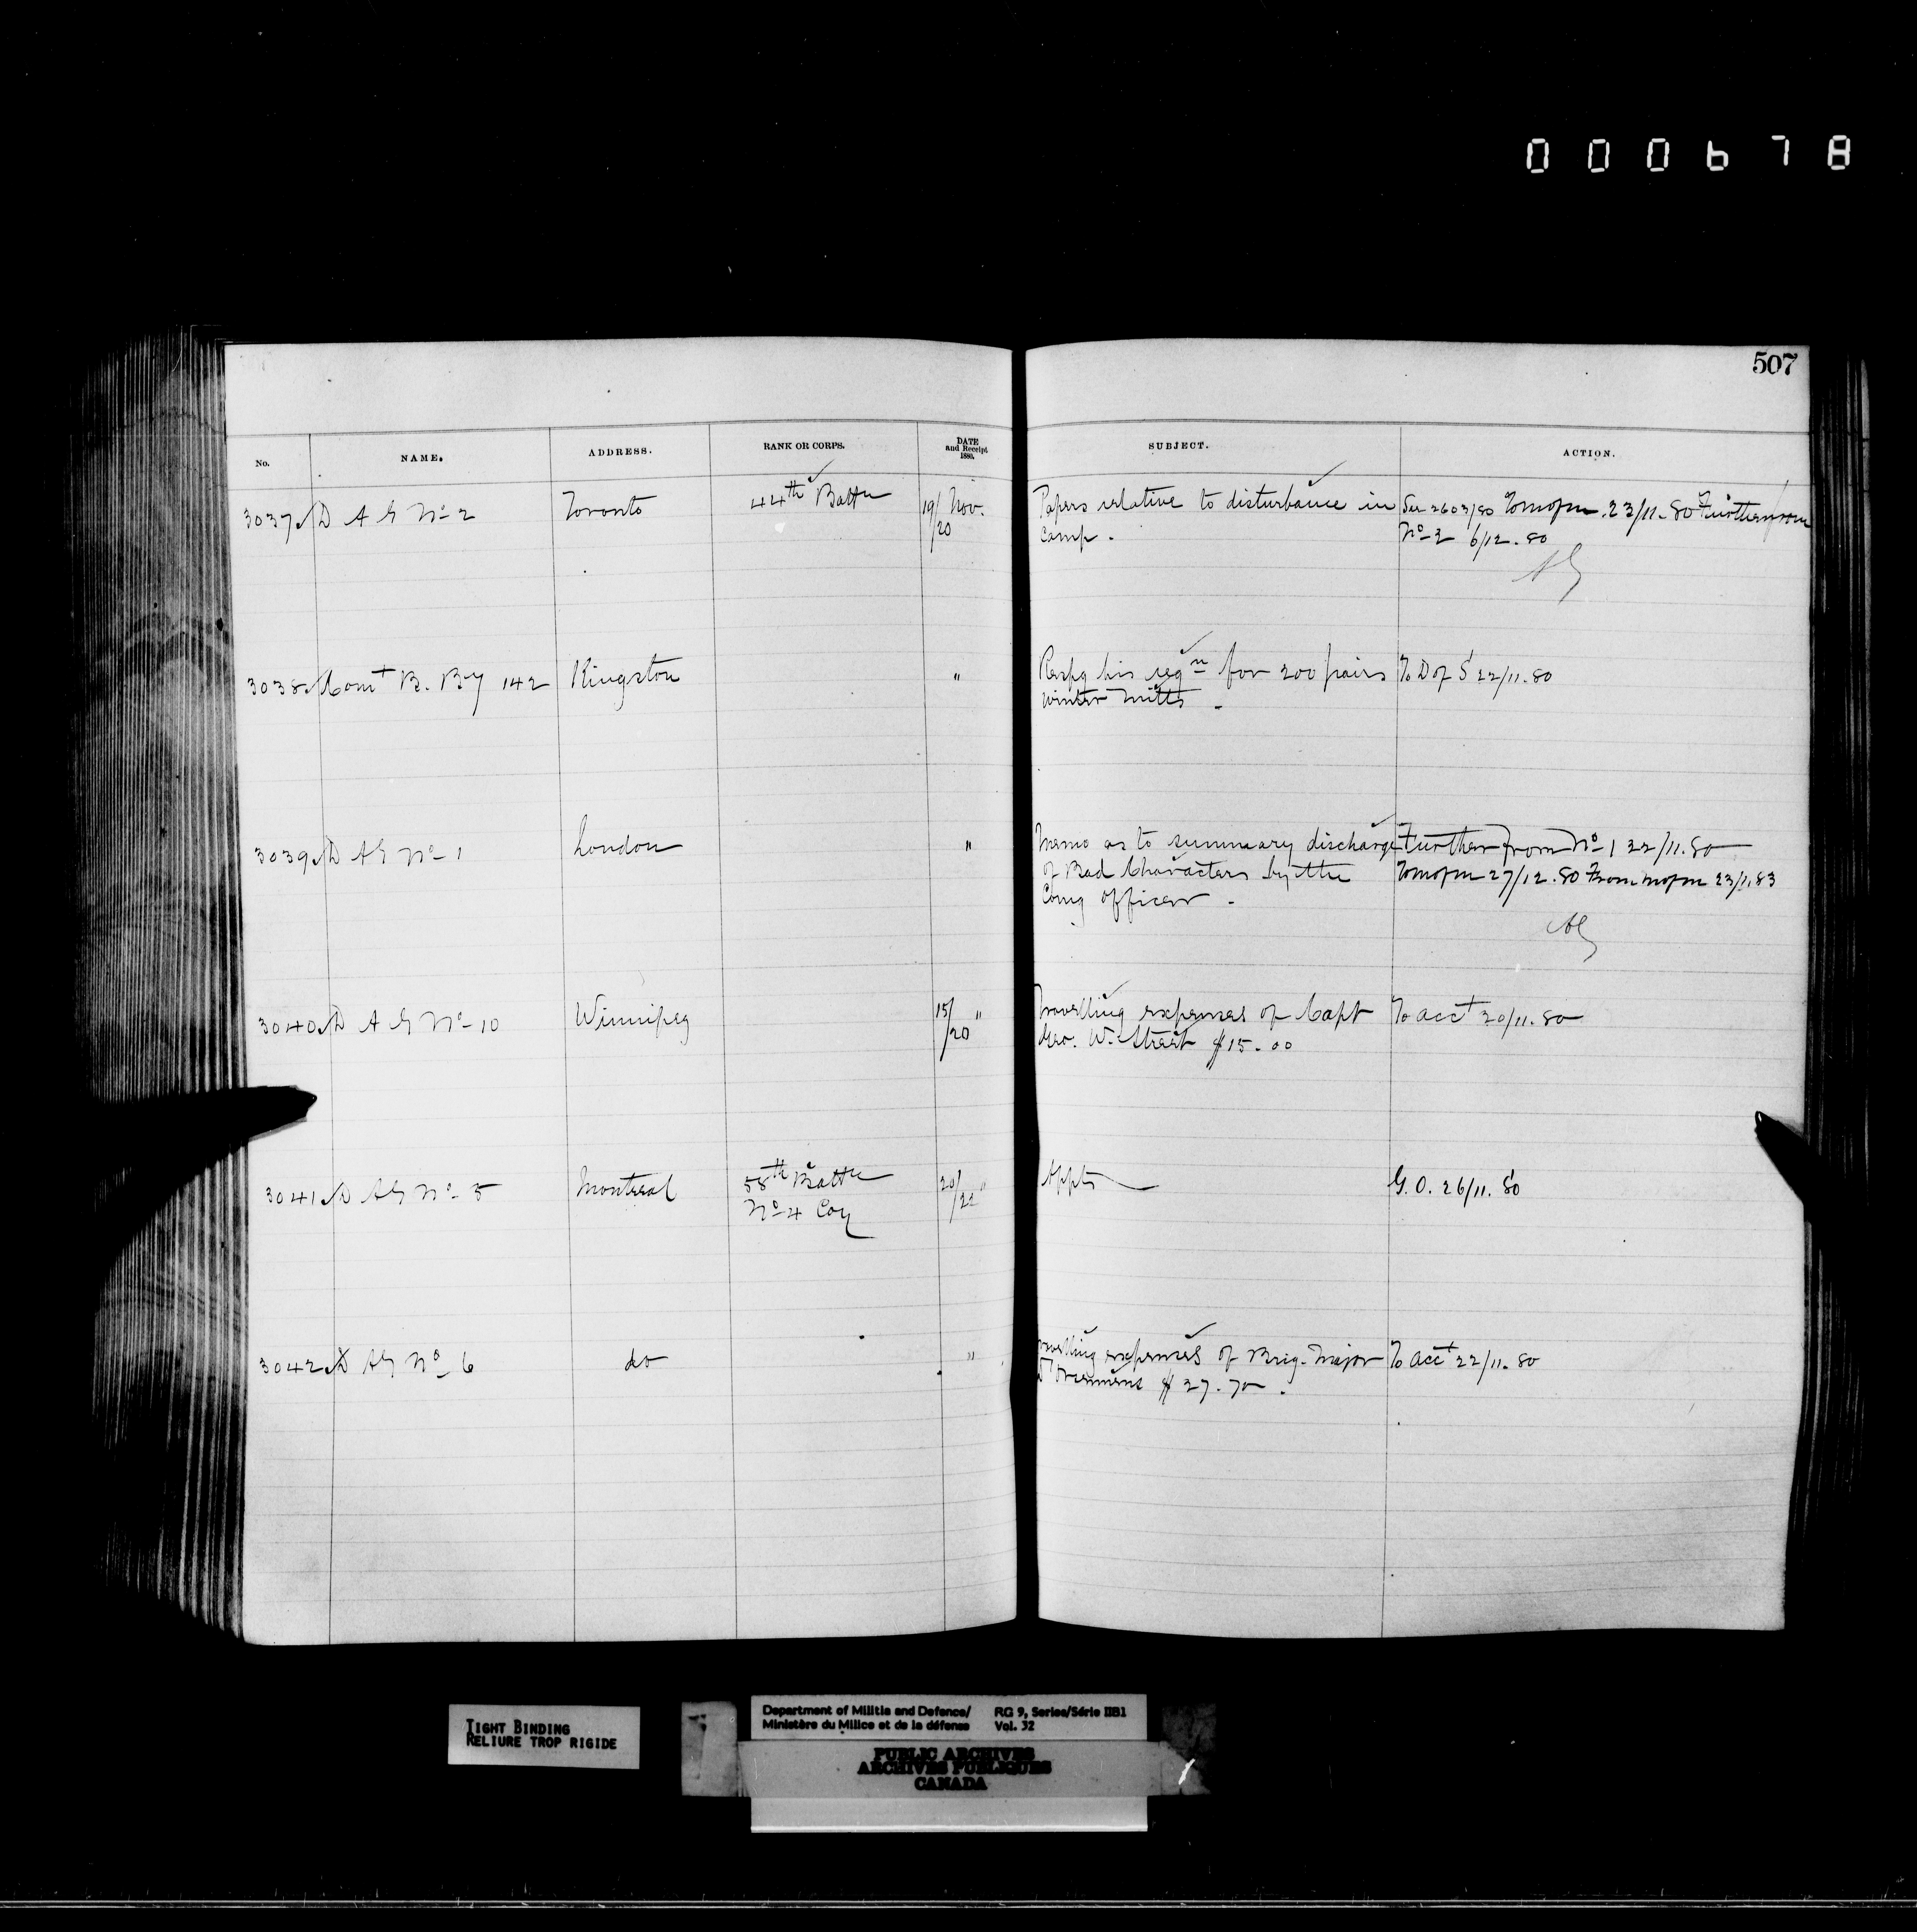 000678
507
No. NAME. ADDRESS. RANK OR CORPS. DATE and Receipt 1880. SUBJECT. ACTION.
3037 D A G No 2 Toronto 44th Battn 19/20 Nov. Papers relative to disturbance in See 2603/80 To mofm. 23/11.80 Further from
camp. No 2 6/12.80
3038 Comt B. By 142 Kingston " Respg his reqn for 200 pairs To D of S 22/11.80
winter mitts.
3039 D A G No 1 London " Memo as to summary discharge Further from No 1 22/11.80
of Bad Characters by the To mofm 27/12.80 From mofm 23/1.83
Comg officer.
3040 D A G No 10 Winnipeg 15/20 " Travelling expenses of Capt To acct 20/11.80
Geo. W. Street $15.00
3041 D A G No 5 Montreal 58th Battn 20/22 " Appts G.O. 26/11.80
No 4 Coy
3042 D A G No 6 do " velling expenses of Brig. Major To acct 22/11.80
$27.70.
TIGHT BINDING
RELIURE TROP RIGIDE
Department of Militia and Defence/ RG 9, Series/Série IIB1
Ministère du Milice et de la défense Vol. 32
PUBLIC ARCHIVES
ARCHIVES PUBLIQUES
CANADA